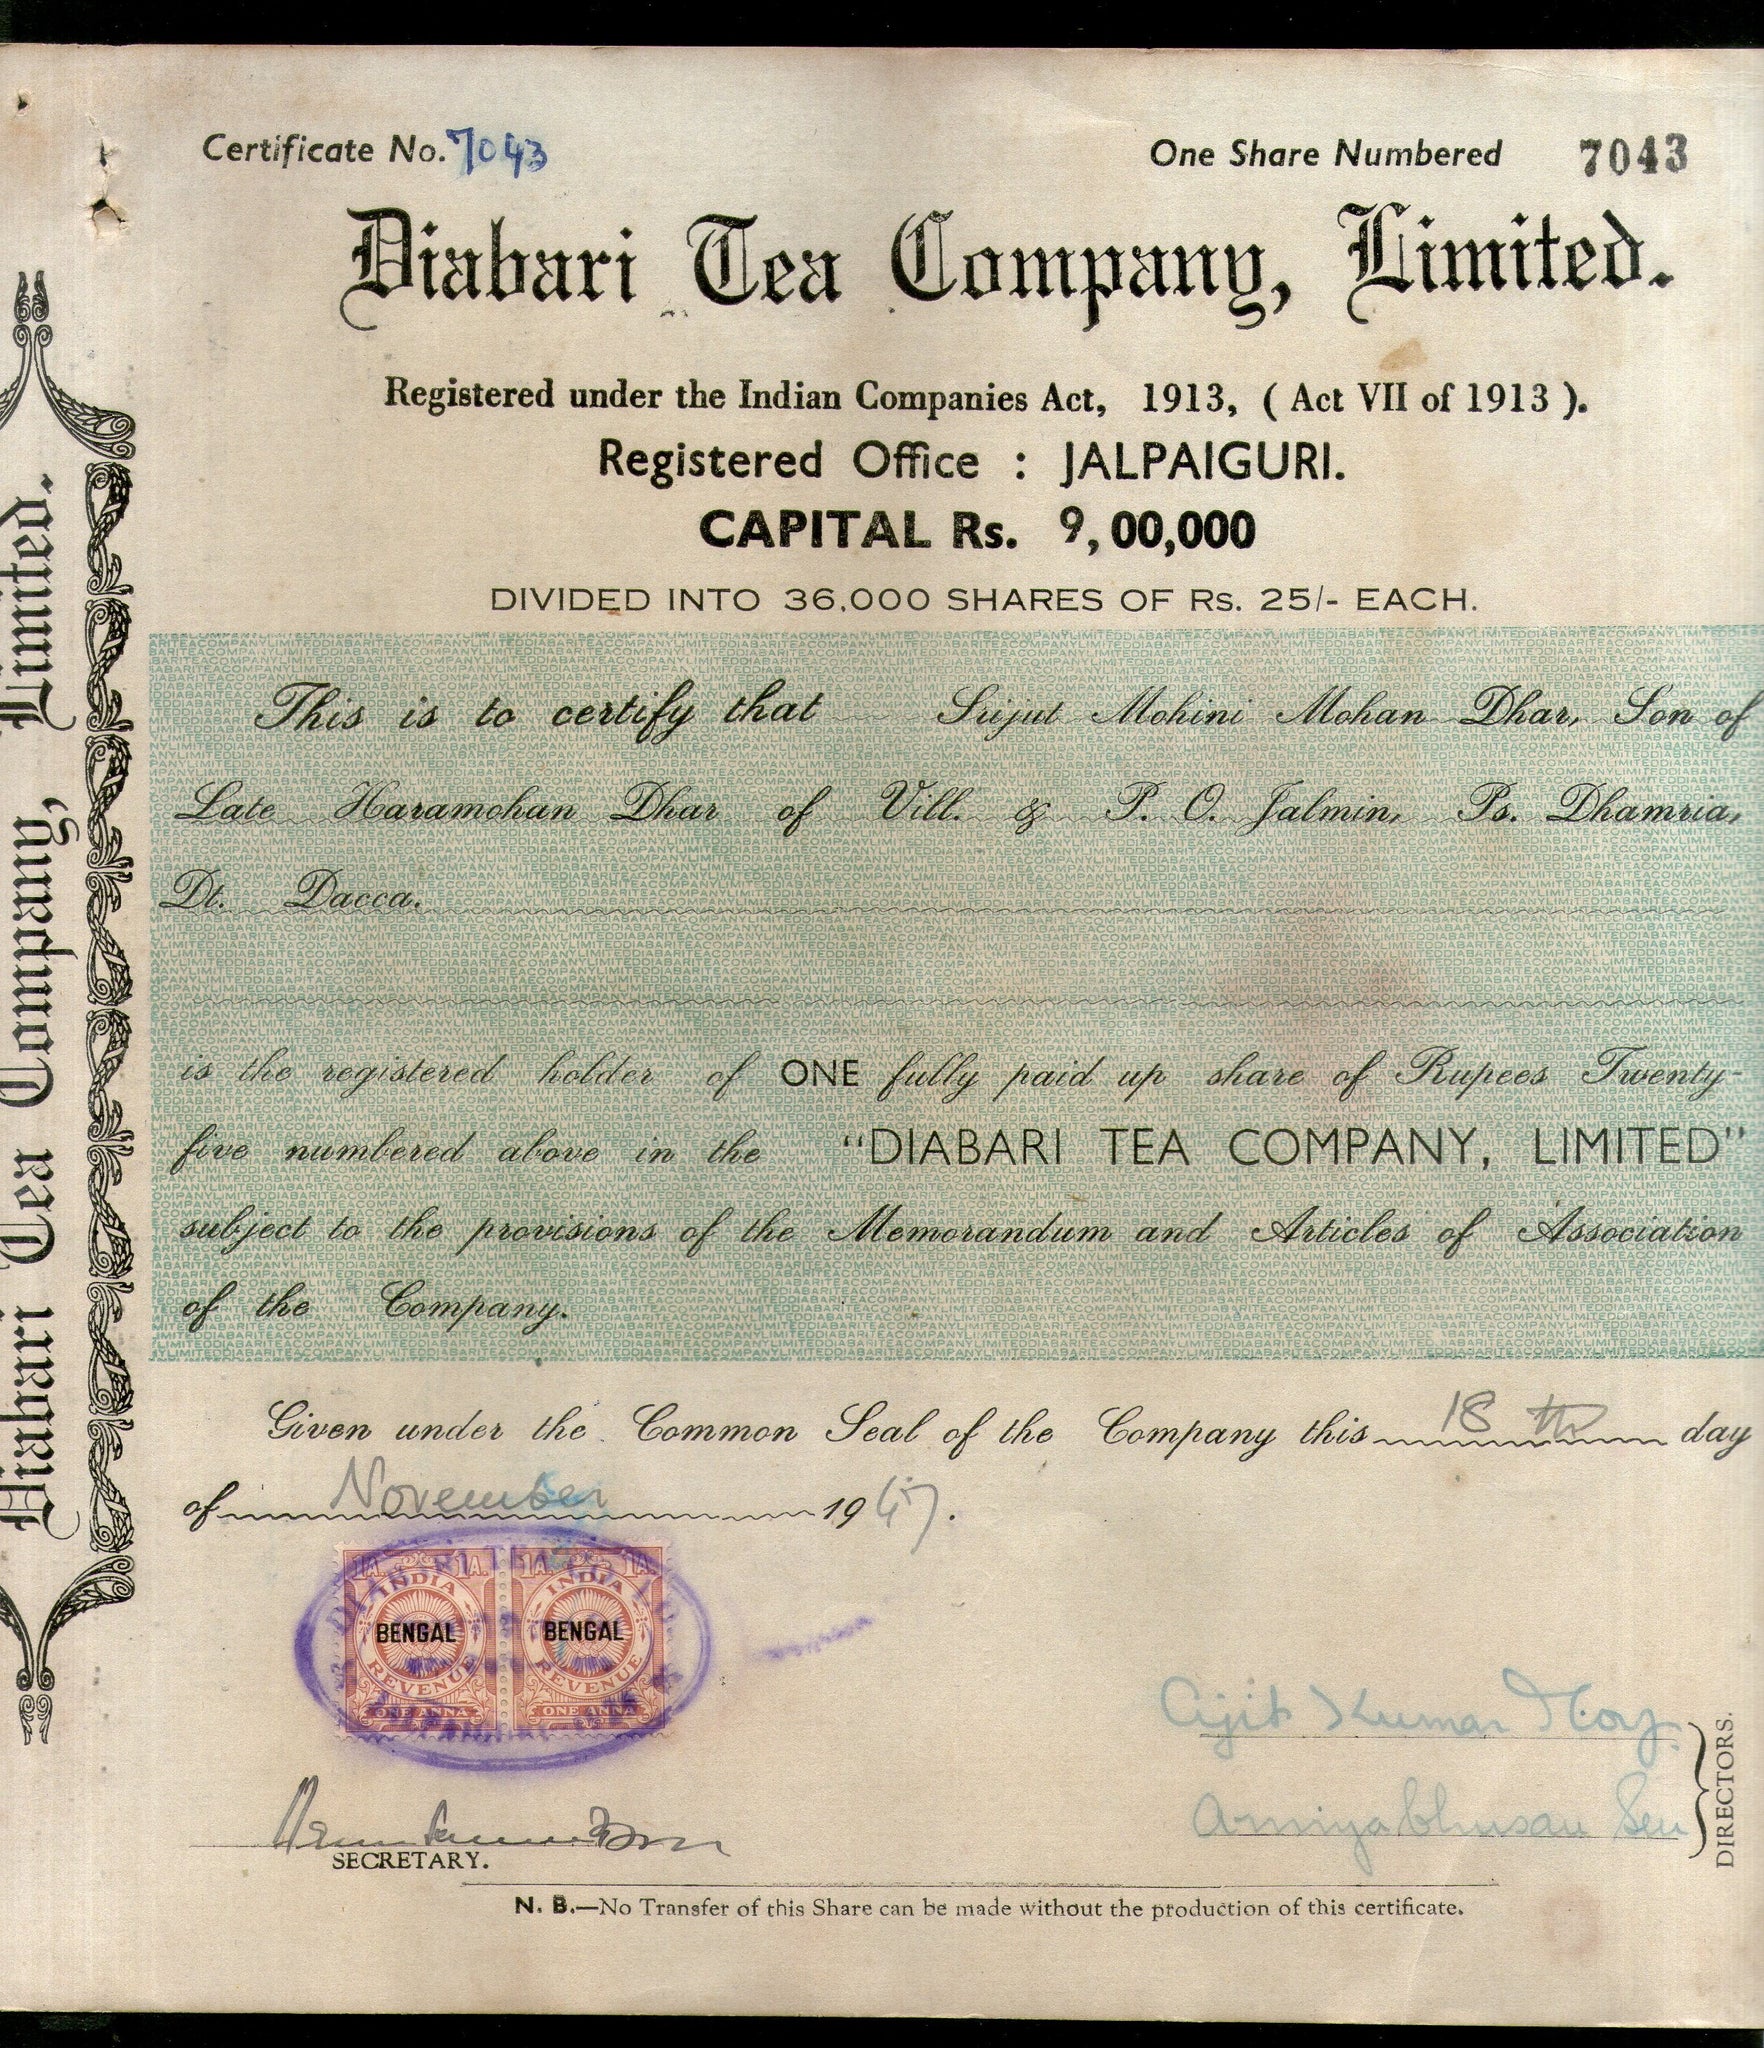 Certificate No. 7043
One Share Numbered 7043
Diabari Tea Company, Limited.
Registered under the Indian Companies Act, 1913, ( Act VII of 1913 ).
Registered Office : JALPAIGURI.
CAPITAL Rs. 9,00,000
DIVIDED INTO 36,000 SHARES OF Rs. 25/- EACH.
This is to certify that Srijut Mohini Mohan Dhar, Son of
Late Haramohan Dhar of Vill. & P. O. Jalmin, Ps. Dhamria,
Dt. Dacca.
is the registered holder of ONE fully paid up share of Rupees Twenty-
five numbered above in the "DIABARI TEA COMPANY, LIMITED"
subject to the provisions of the Memorandum and Articles of Association
of the Company.
Given under the Common Seal of the Company this 18 th day
of November 1947.
1A. 1A. 1A. 1A.
INDIA INDIA
BENGAL BENGAL
REVENUE REVENUE
ONE ANNA ONE ANNA
Ajit Kumar Roy.
Amiyabhusan Sen
DIRECTORS.
SECRETARY.
N. B.—No Transfer of this Share can be made without the production of this certificate.
Diabari Tea Company, Limited.